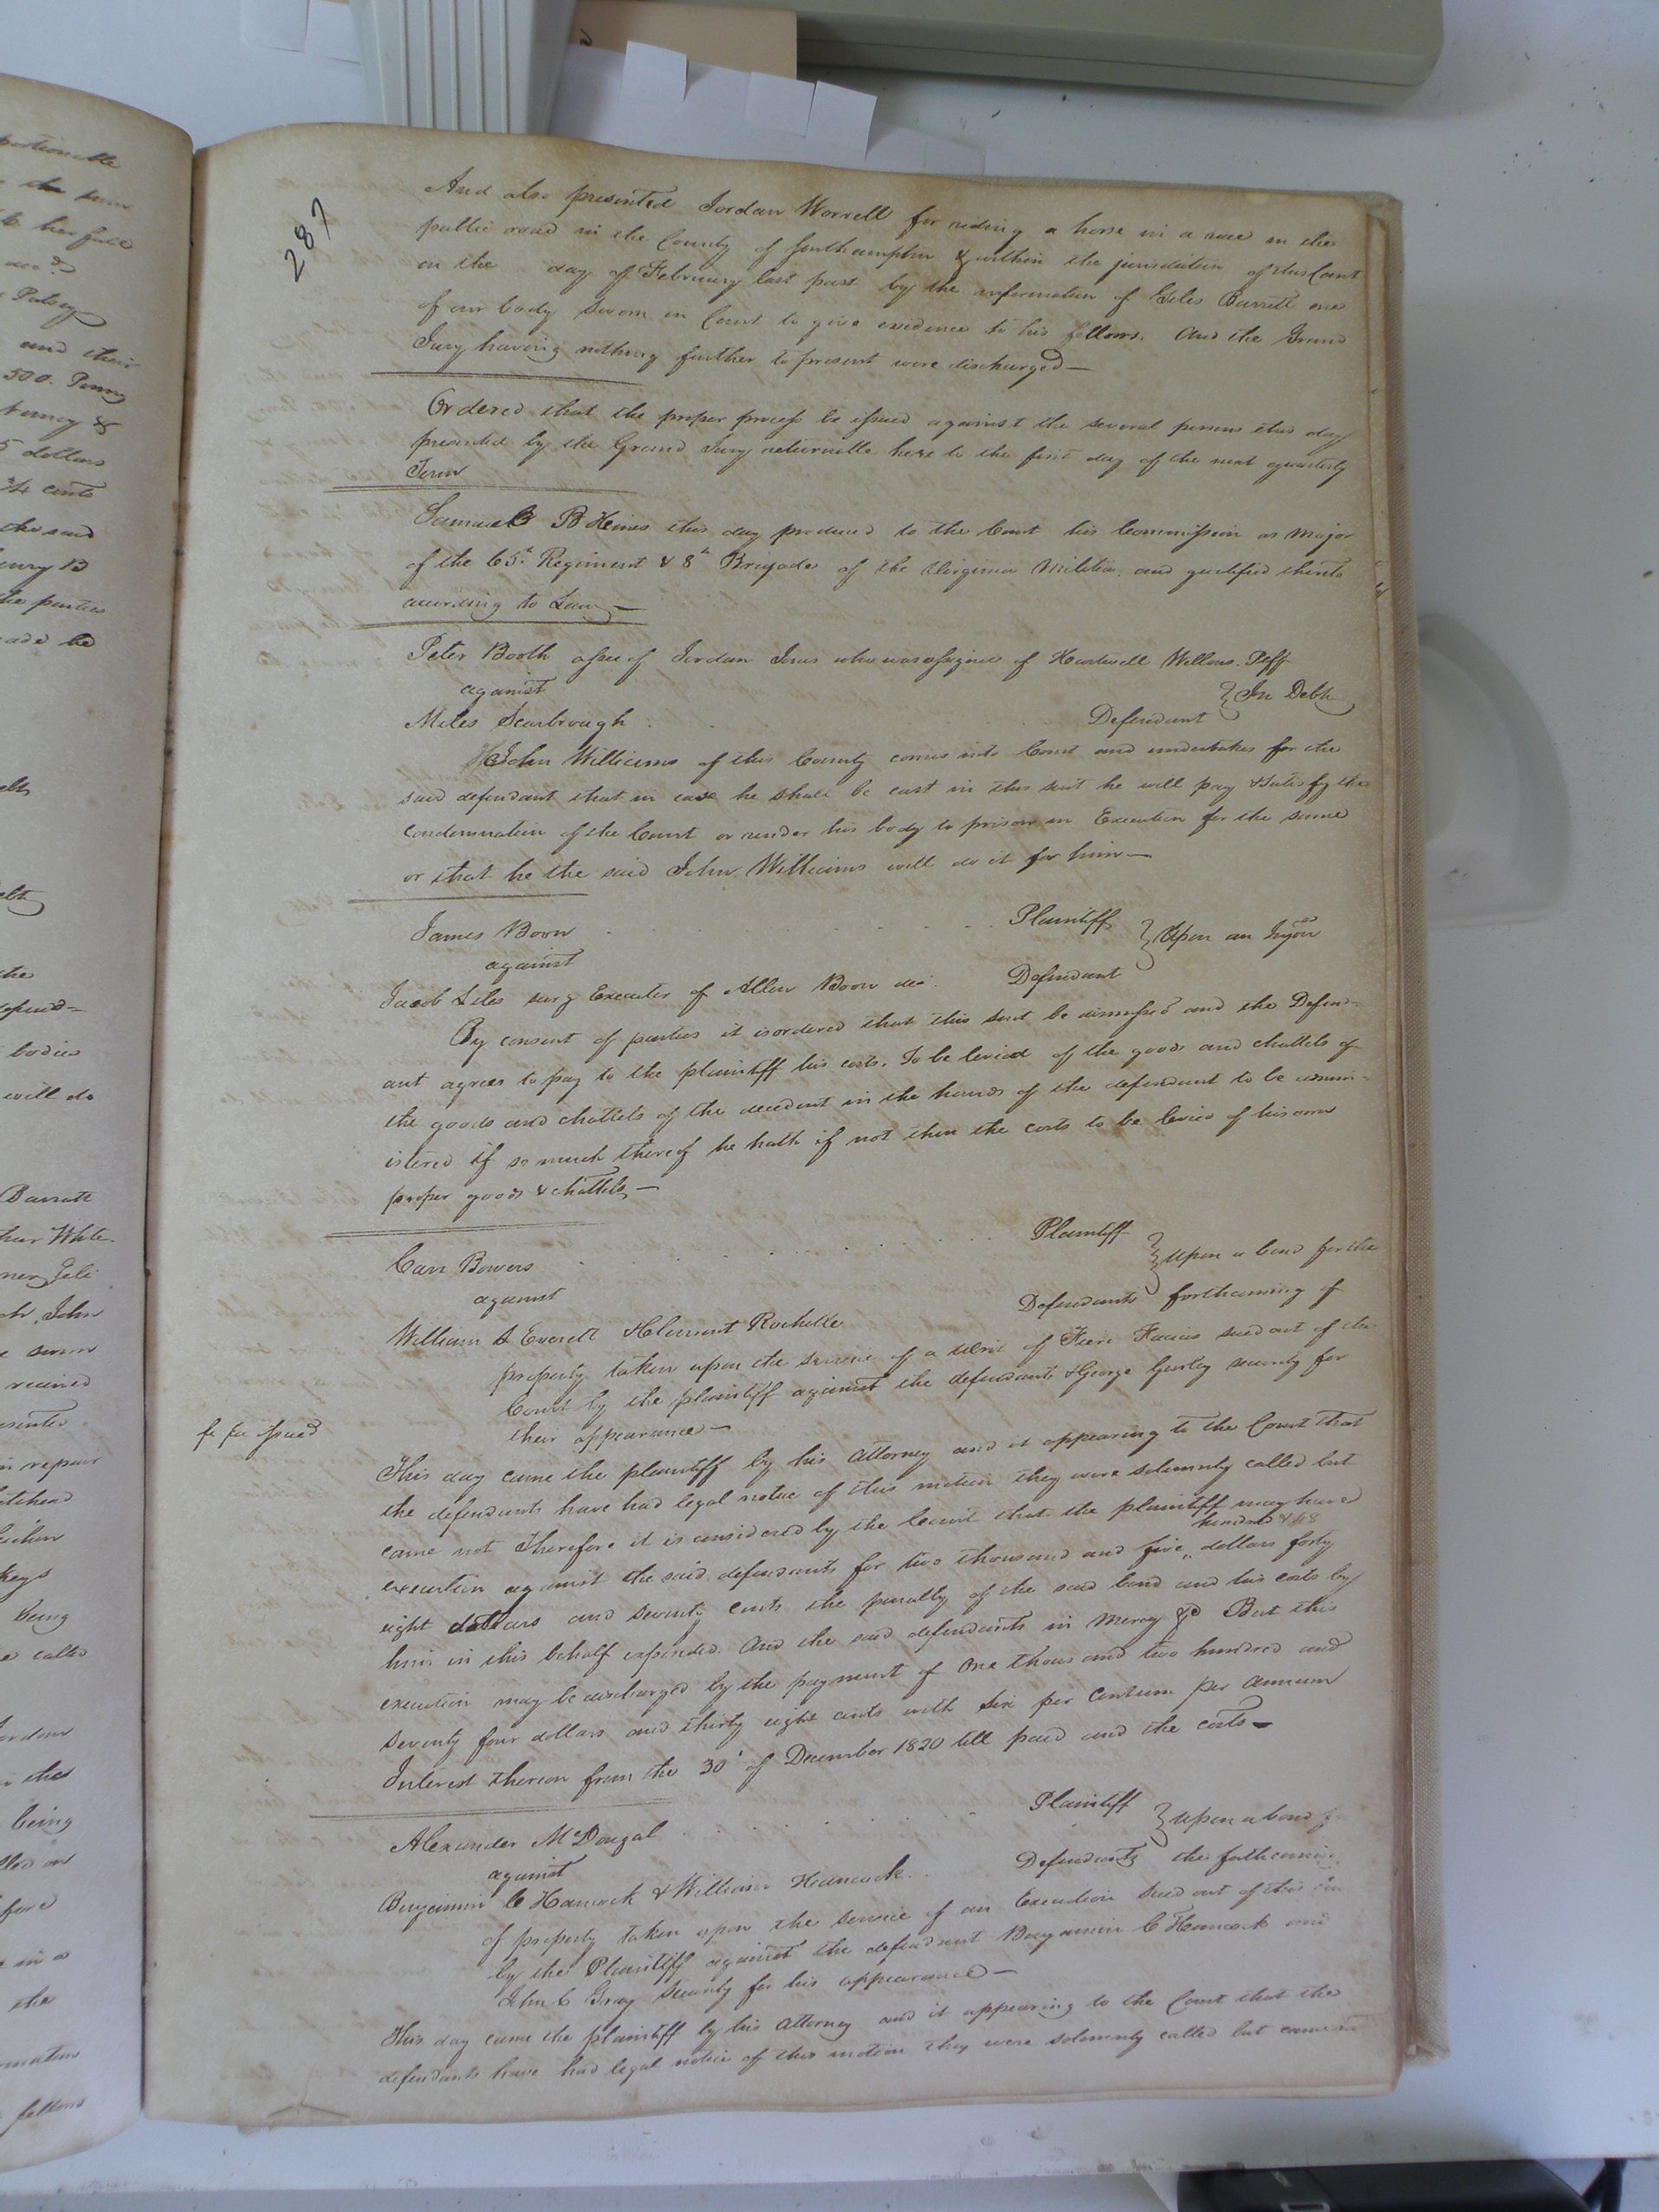 287
And also presented Jordan Worrell for riding a horse in a race in the
public road in the County of Southampton & within the jurisdiction of this Court
on the day of February last past by the information of Giles Barrett one
of our body sworn in Court to give evidence to his fellows. And the Grand
Jury having nothing further to present were discharged —
Ordered that the proper process be issued against the several persons this day
presented by the Grand Jury returnable here to the first day of the next quarterly
Term
Samuel B Hines this day produced to the Court his Commission as Major
of the 65th Regiment & 8th Brigade of the Virginia Militia and qualified thereto
according to Law —
Peter Booth assee of Jordan Ivus who was assignee of Hartwell Willons. Plff
against } In Debt
Miles Scarbrough Defendant
John Williams of this County comes into Court and undertakes for the
said defendant that in case he shall be cast in this suit he will pay & satisfy the
condemnation of the Court or render his body to prison in Execution for the same
or that he the said John Williams will do it for him —
James Boon Plaintiff
against } Upon an Injon
Jacob Liles surg Executor of Allen Boon dec. Defendant
By consent of parties it is ordered that this suit be dismissed and the Defend-
ant agrees to pay to the plaintiff his costs. To be levied of the goods and chattels of
the goods and chattels of the decedent in the hands of the defendant to be admin-
istered if so much thereof he hath if not then the costs to be levied of his own
proper goods & chattels —
Carr Bowers Plaintiff
against } Upon a bond for the
William A Everett & Clement Rochelle Defendants forthcoming of
property taken upon the service of a writ of Fieri Facias sued out of the
Court by the plaintiff against the defendants & George Gurley security for
their appearance —
fi fa issued
This day came the plaintiff by his attorney and it appearing to the Court that
the defendants have had legal notice of this motion they were solemnly called but
came not Therefore it is considered by the Court that the plaintiff may have
execution against the said defendants for two thousand and five hundred & 48 dollars forty
eight dollars and seventy cents the penalty of the said bond and his costs by
him in this behalf expended. And the said defendants in Mercy &c But this
execution may be discharged by the payment of One thousand two hundred and
seventy four dollars and thirty eight cents with six per Centum per annum
Interest thereon from the 30th of December 1820 till paid and the costs —
Alexander McDougal Plaintiff
against } Upon a bond
Benjamin C Hancock & William Hancock Defendants the forthcoming
of property taken upon the service of an Execution sued out of this
by the Plaintiff against the defendant Benjamin C Hancock and
John C Gray security for his appearance —
This day came the plaintiff by his Attorney and it appearing to the Court that the
defendants have had legal notice of this motion they were solemnly called but came not